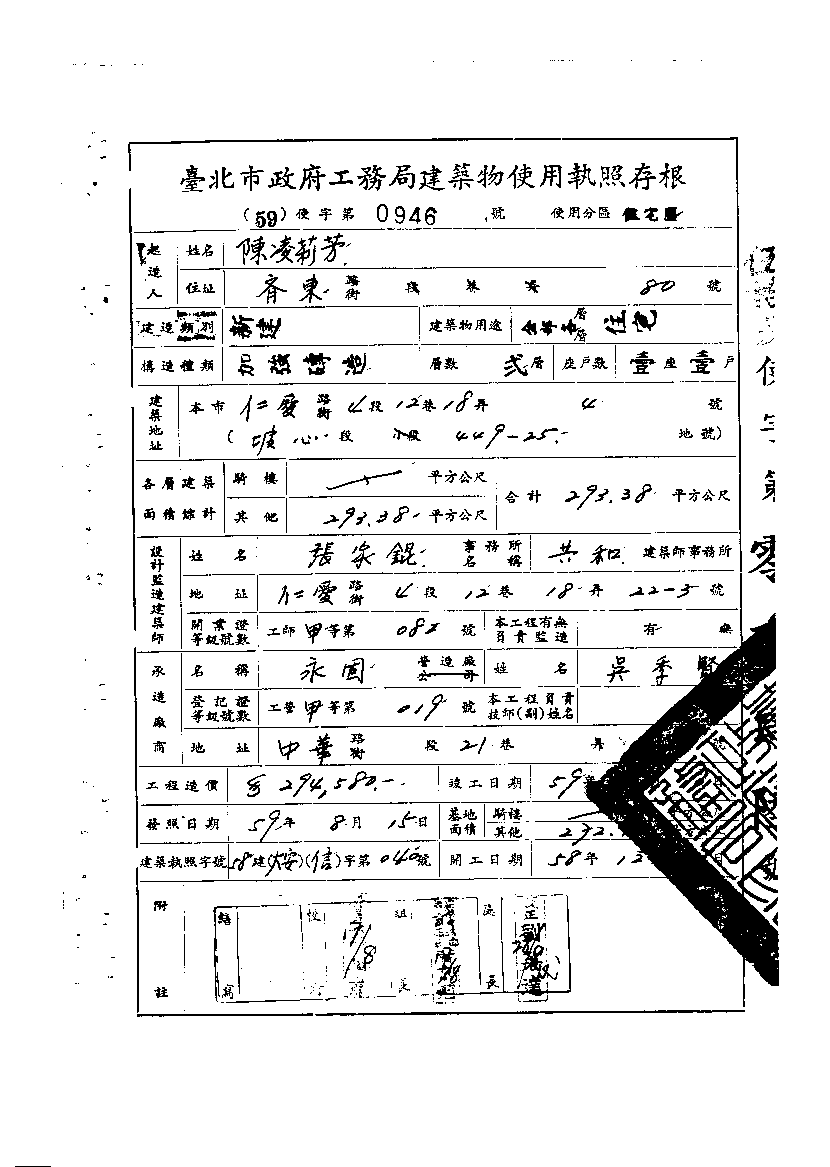 臺北市政府工務局建築物使用執照存根
(59)使字第 0946 號 使用分區 住宅區
起造人 姓名 陳凌莉芳
住址 齊東 路街 段 巷 弄 80 號
建造類別 新建 建築物用途 層層 住宅
構造種類 加強磚造 層數 弍層 座戶數 壹座壹戶
建築地址 本市 仁愛 路街 4段12巷18弄 4 號
(坡心 段 小段 449-25. 地號)
各層建築面積綜計 騎樓 平方公尺 合計 293.38 平方公尺
其他 293.38 平方公尺
設計監造建築師 姓名 張 錕 事務所名稱 共和 建築師事務所
地址 仁愛 路街 4 段 12 巷 18 弄 22-3 號
開業證等級號數 工師甲等第 082 號 本工程有無負責監造 有 無
承造廠商 名稱 永固 營造廠公司 姓名 吳季賢
登記證等級號數 工營甲等第 019 號 本工程負責技師(副)姓名
地址 中華 路街 段 21 巷 弄 號
工程造價 294,580.- 竣工日期 59年
發照日期 59年 8月 15日 基地面積 騎樓
其他 232.
建築執照字號 58建(大安)(信)字第040號 開工日期 58年 12
附註
組長
處長
使字第零